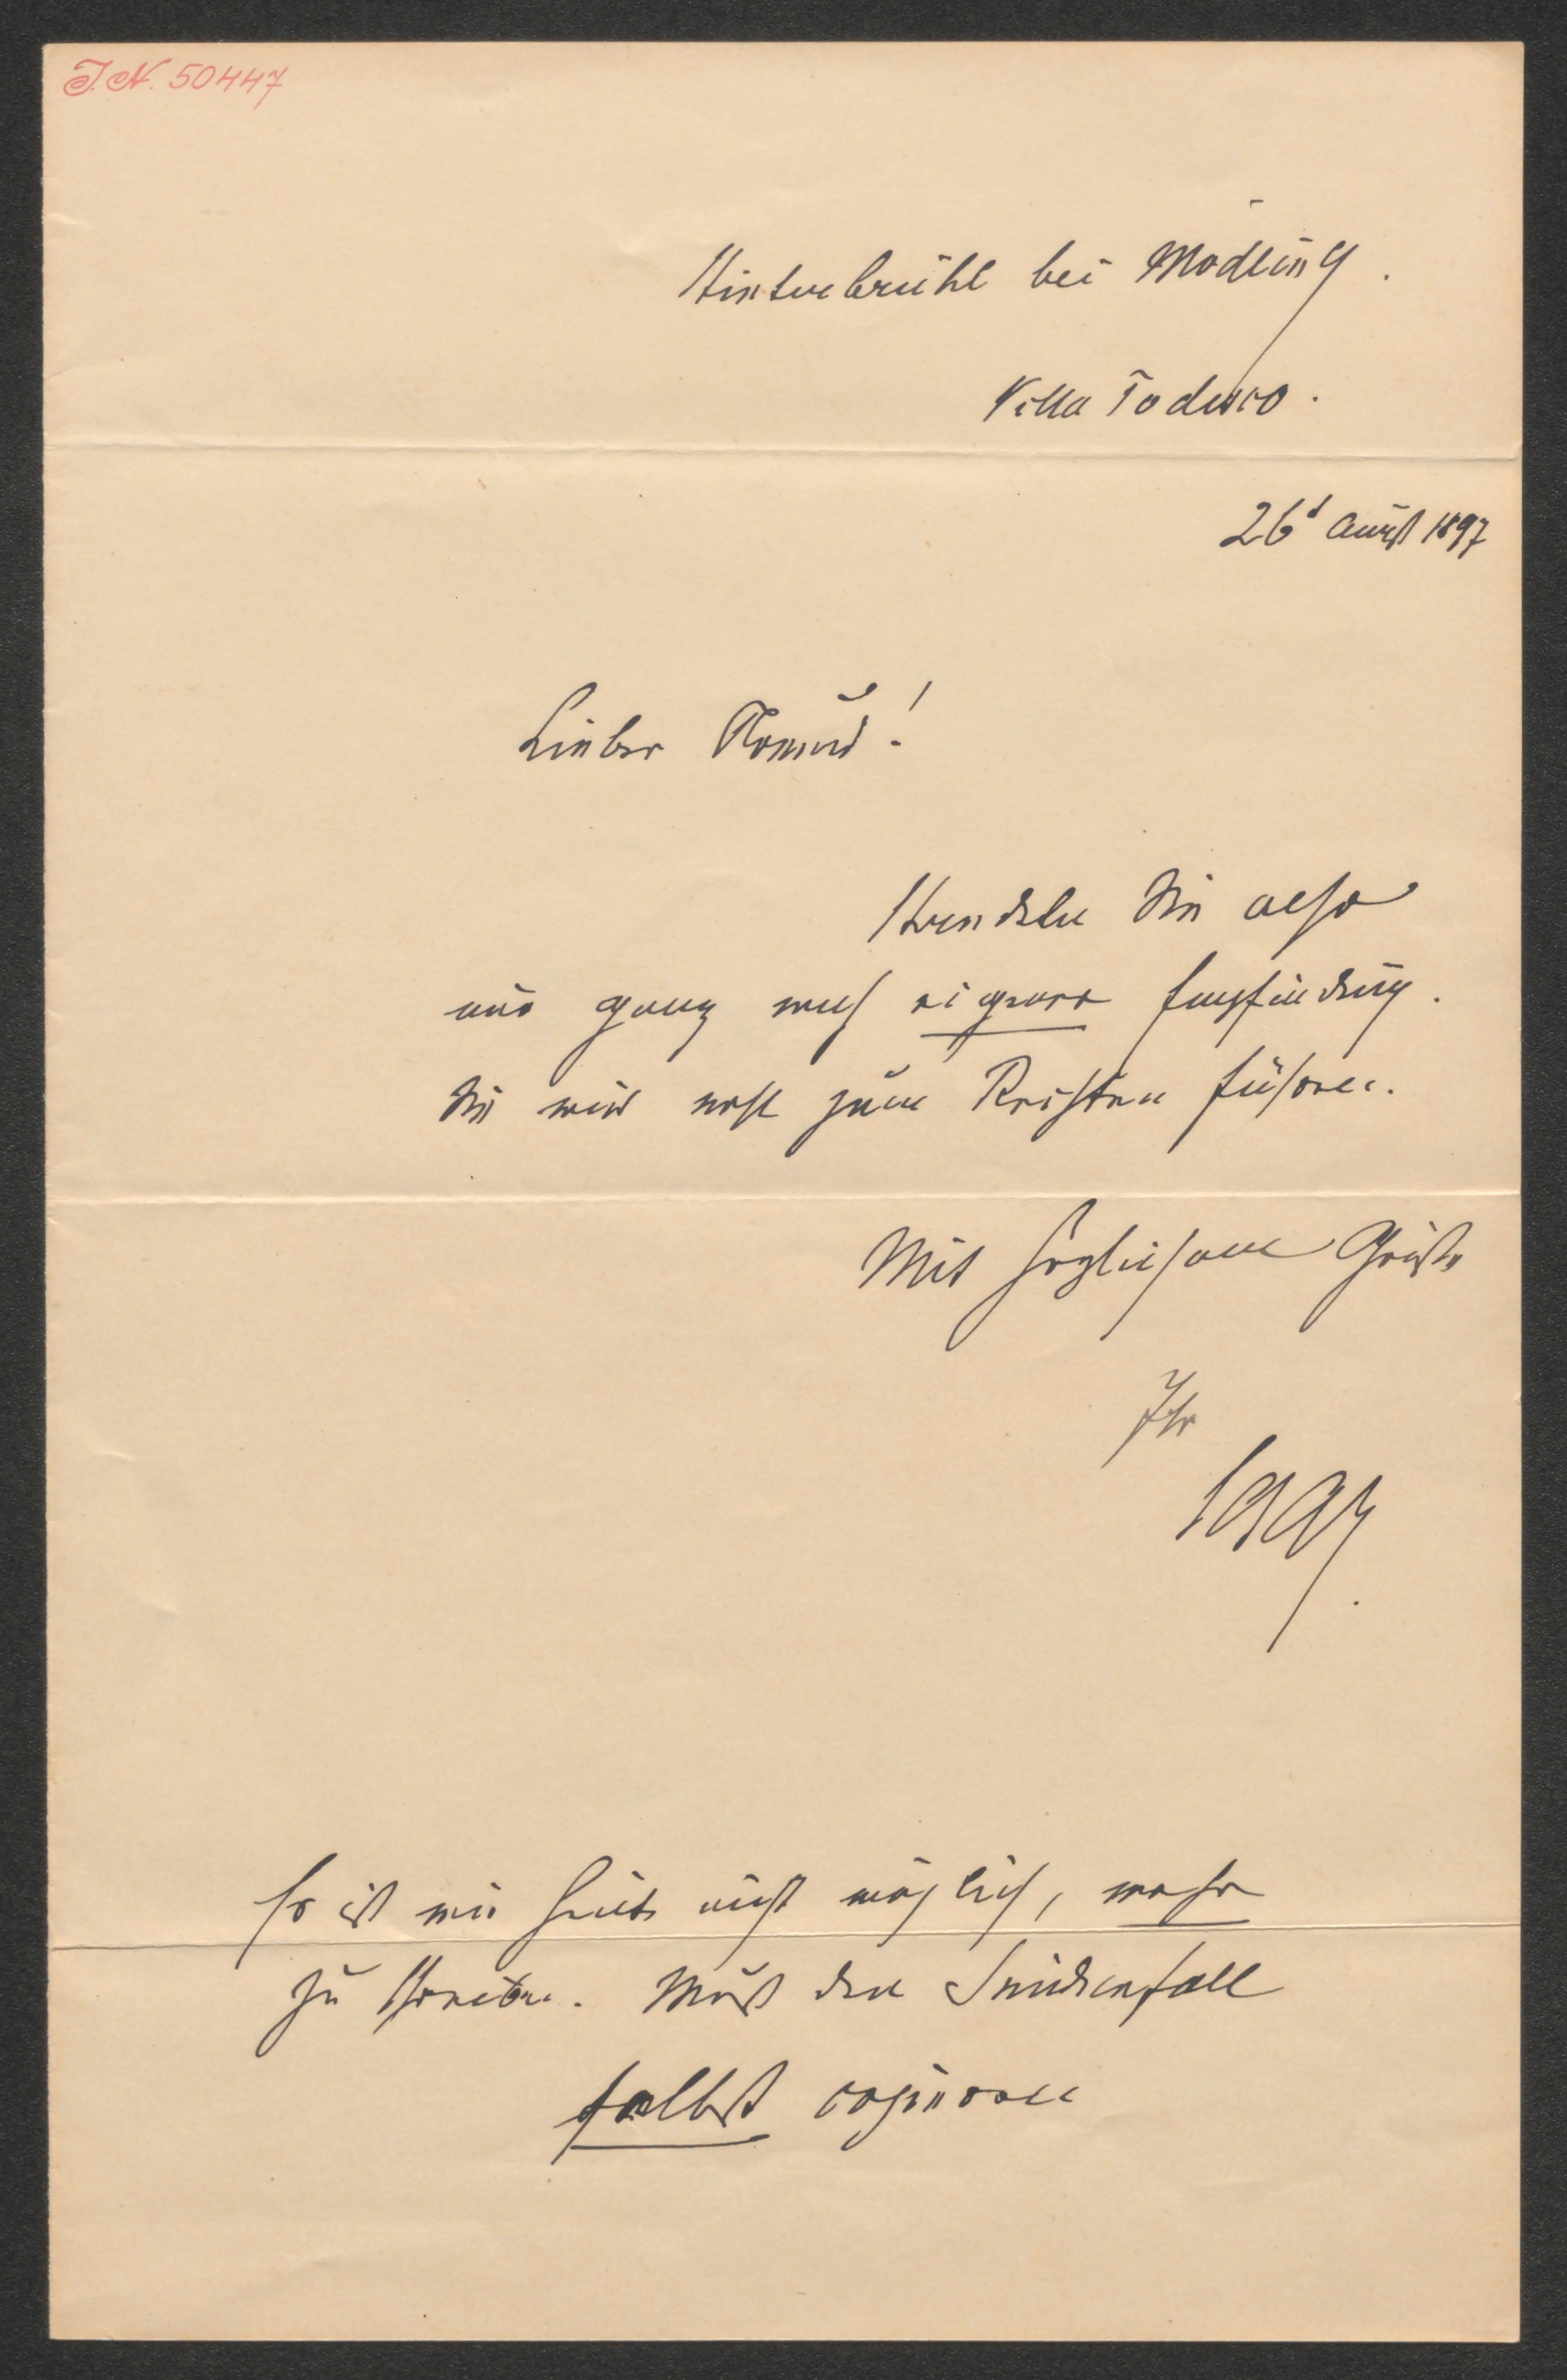 J. N. 50447
Hinterbrühl bei Mödling.
Villa Todesco.
26t August 1897
Lieber Freund!
Handeln Sie also
nur ganz nach eigener Empfindung.
Sie wird wohl zum Rechten führen.
Mit herzlichem Gruße
Ihr
Saar.
Es ist mir heute nicht möglich, mehr
zu schreiben. Muß den Sündenfall
selbst copieren